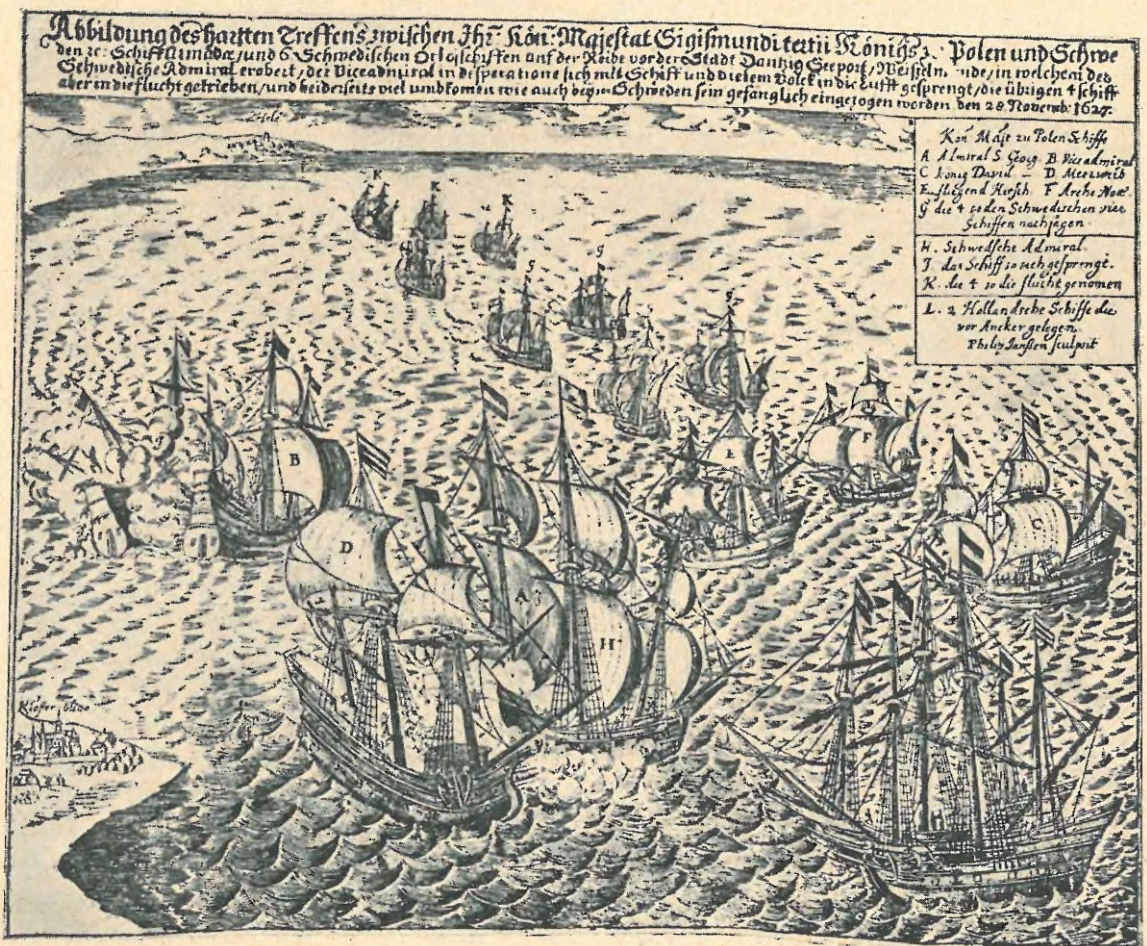 Abbildung des hartten Treffens zwischen Ihr: Kön: Majestat Sigismundi tertii Königs z: Polen und Schwe
den ec: Schiff Armada, und 6 Schwedischen Orloischiffen auf der Reide vor der Stadt Dantzig Seeport, in welchem der
Schwedische Admiral erobert, der Viceadmiral in desperatione sich mit Schiff und Volck in die Lufft gesprengt, die übrigen 4 schiff
aber in die flucht getrieben, und beiderseits viel umbkomen wie auch Schweden sein gefänglich eingezogen worden den 28. Novemb: 1627.
Hela
Kön Maje zu Polen Schiffe
A Admiral S. Georg. B Vice admiral
C König David - D Meerweib
E fliegend Hirsch F Arche Noe
G die 4 so den Schwedischen vier
Schiffen nachjagen
H. Schwedsche Admiral.
J das Schiff so sich gesprengt.
K. die 4 so die flucht genomen
L. 2 Hollandsche Schiffe die
vor Ancker gelegen.
Philip Janßen sculpsit
K
K
K
G
G
G
B
E
F
C
D
A
H
Kloster Oliva